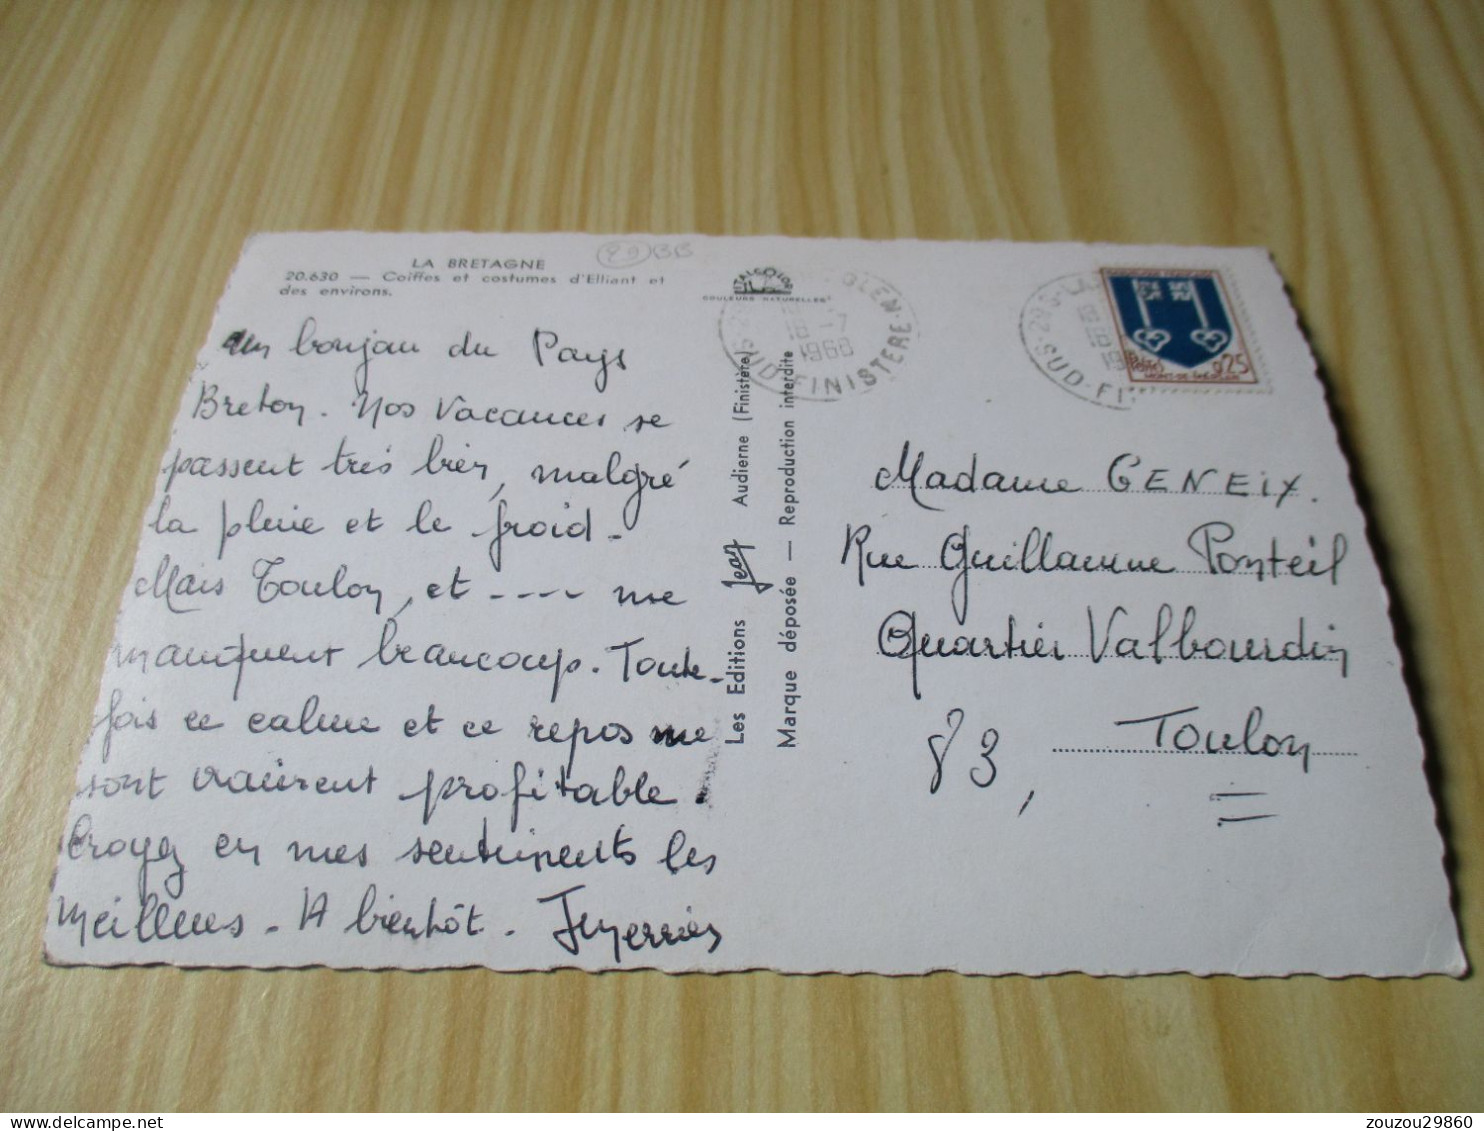 LA BRETAGNE
20.630 — Coiffes et costumes d'Elliant et
des environs.
29 BB
un bonjour du Pays
Breton. Nos vacances se
passent très bien, malgré
la pluie et le froid.
Mais Toulon, et ---- me
manquent beaucoup. Toute-
fois ce calme et ce repos me
sont vraiment profitable.
Croyez en mes sentiments les
meilleurs. A bientôt.
COULEURS "NATURELLES"
Les Editions Jean Audierne (Finistère)
Marque déposée — Reproduction interdite
GLEN
18-7
1968
SUD-FINISTERE
SUD-FI
0,25
MONT-DE-MARSAN
Madame GENEIX.
Rue Guillaume Ponteil
Quartier Valbourdin
83, Toulon
zouzou29860